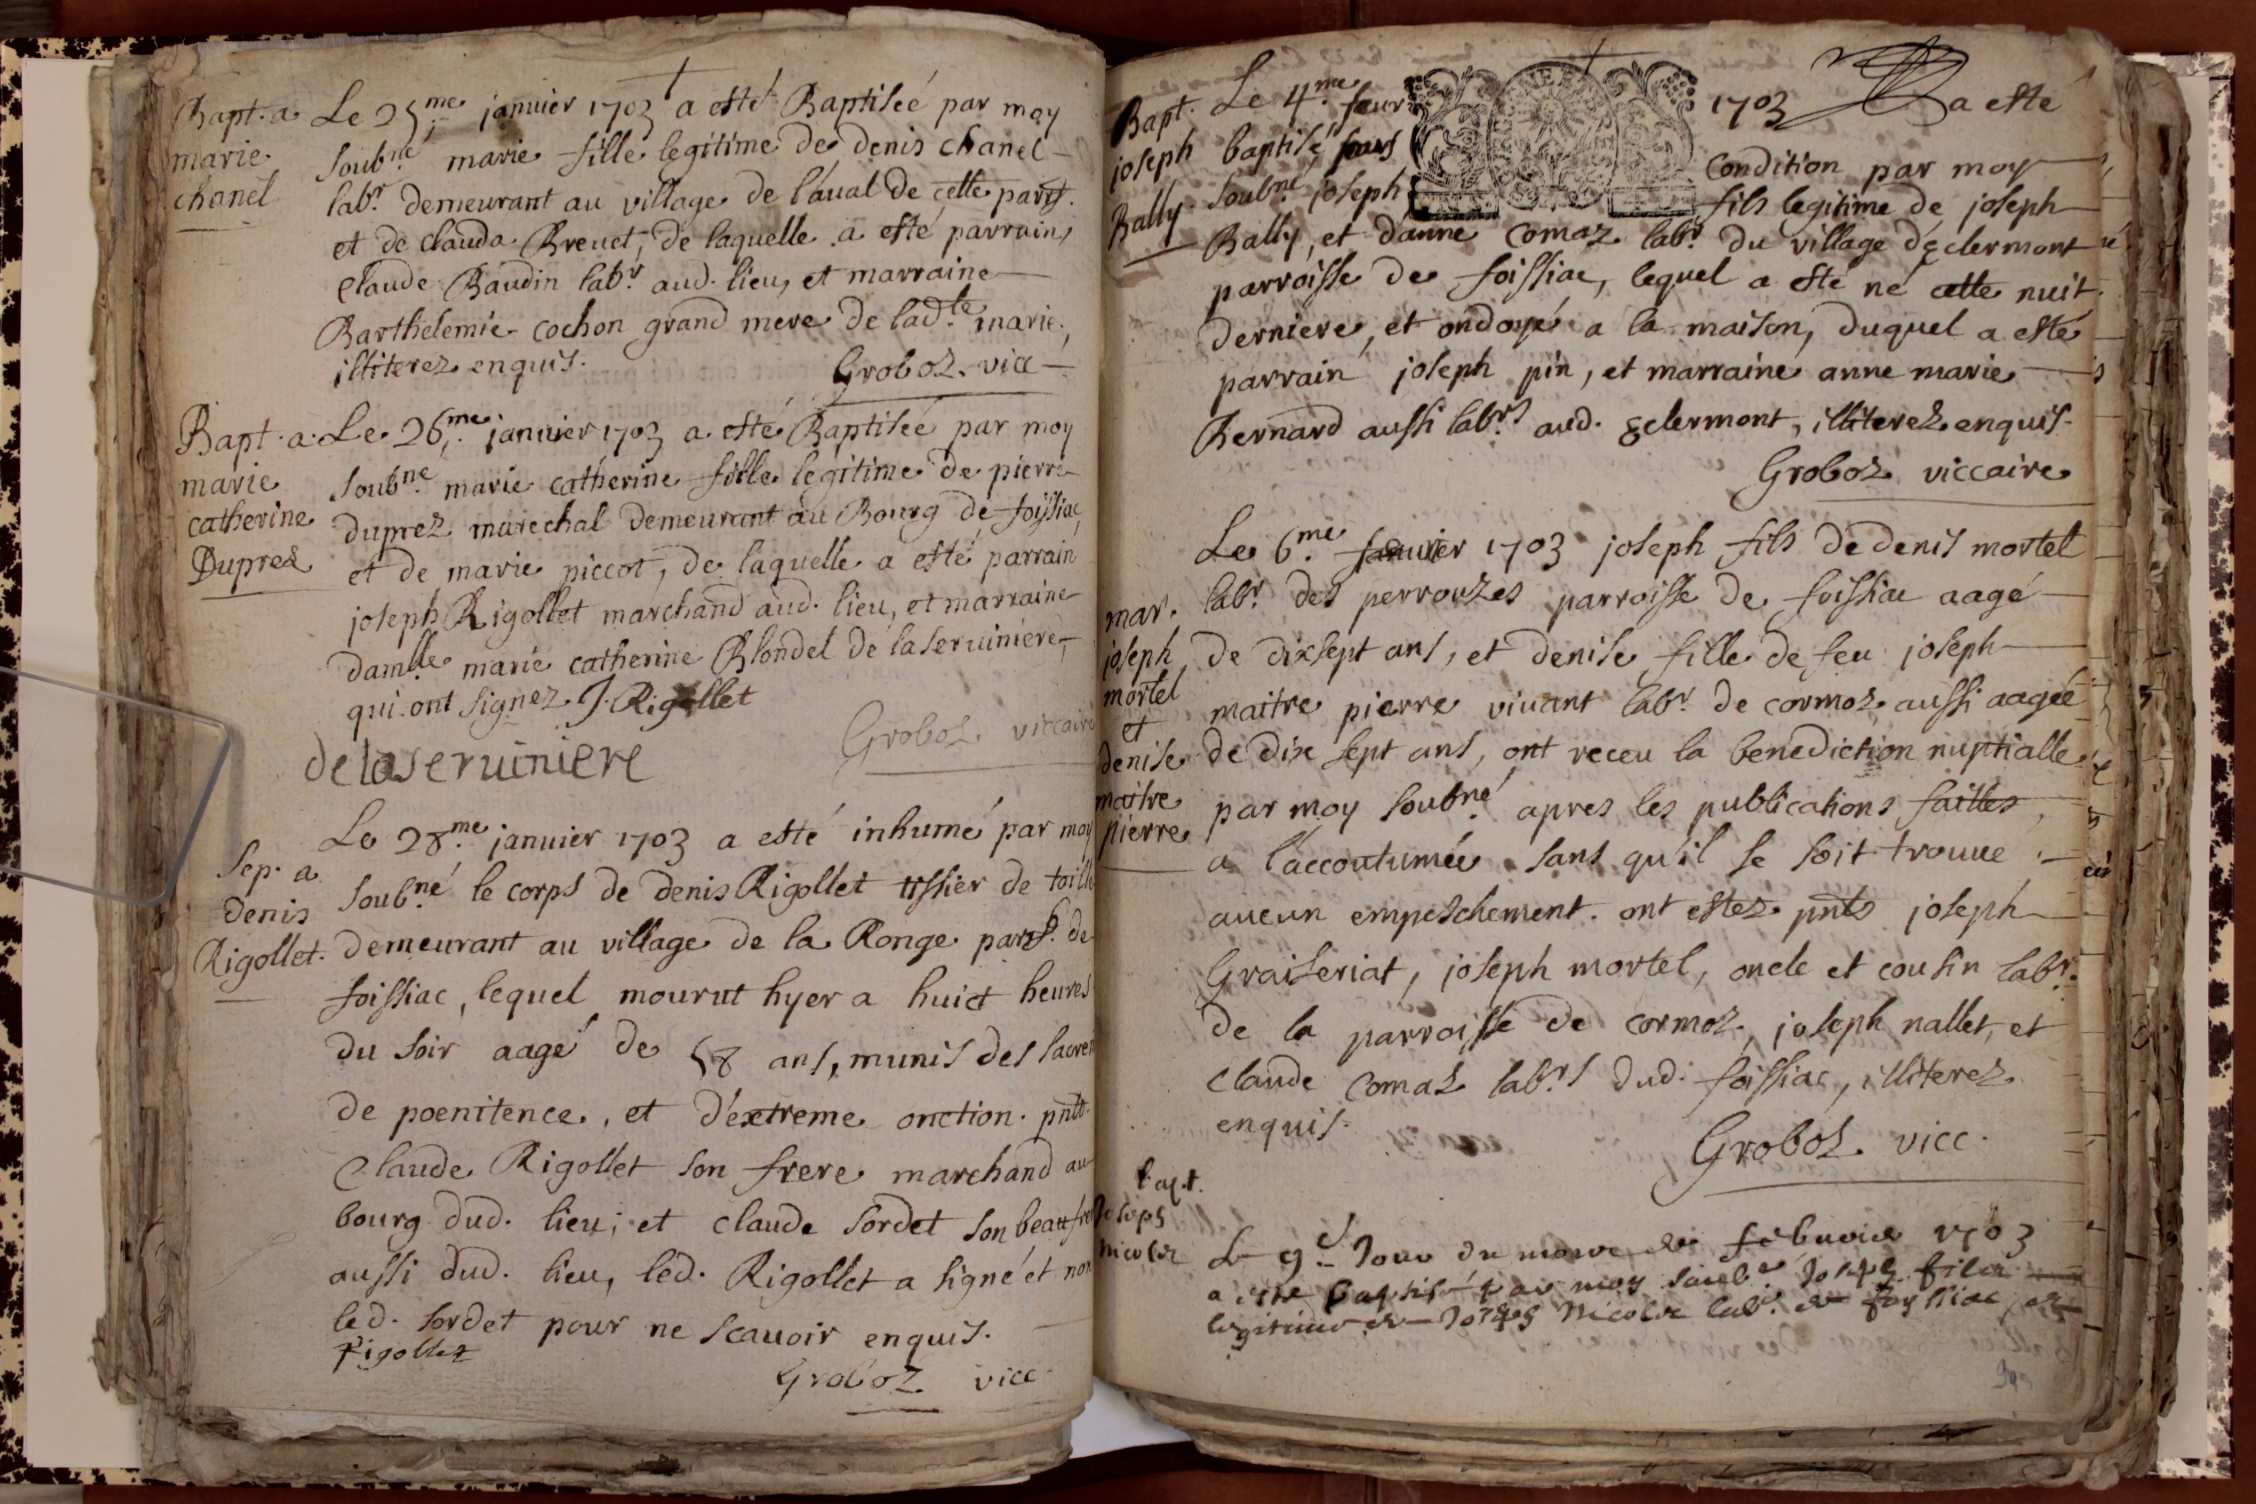 Bapt. a
marie
chanel
Le 25.me janvier 1703 a esté Baptiseé par moy
soub.né marie fille legitime de denis chanel
lab.r demeurant au village de l'aval de cette parr.
et de clauda Brevet, de laquelle a esté parrain,
claude Baudin lab.r aud. lieu, et marraine
Barthelemie cochon grand mere de lad.te marie,
illiterez enquis.
Groboz. vicc
Bapt. a
marie
catherine
Duprez
Le 26.me janvier 1703 a esté Baptiseé par moy
soub.né marie catherine fille legitime de pierre
duprez marechal demeurant au Bourg de foissiac,
et de marie piccot, de laquelle a esté parrain
joseph Rigollet marchand aud. lieu, et marraine
dam.lle marie catherine Blondel de laserviniere,
qui ont signez J. Rigollet
Groboz viccaire
delaserviniere
Sep. a
denis
Rigollet.
Le 28.me janvier 1703 a esté inhumé par moy
soub.né le corps de denis Rigollet tissier de toille
demeurant au village de la Ronge parr. de
foissiac, lequel mourut hyer a huict heures
du soir aagé de 58 ans, munis des sacrem
de poenitence, et d'extreme onction. pntt.
Claude Rigollet son frere marchand au
bourg dud. lieu; et claude sordet son beau fre
aussi dud. lieu, led. Rigollet a signé et non
led. sordet pour ne scavoir enquis.
Rigollet
Groboz vicc
Bapt.
joseph
Bally
Le 4.me fevr 1703 a esté
baptisé sous condition par moy
soub.né joseph fils legitime de joseph
Bally, et d'anne comaz lab.r du village d'eclermont
parroisse de foissiac, lequel a esté né cette nuit
derniere, et ondoyé a la maison, duquel a esté
parrain joseph pin, et marraine anne marie
Bernard aussi lab.rs aud. eclermont, illiterez enquis.
Groboz viccaire
mar.
joseph
mortel
et
denise
maitre
pierre
Le 6.me janvier 1703 joseph fils de denis mortel
lab.r des perrouzes parroisse de foissiac aagé
de dixsept ans, et denise fille de feu joseph
maitre pierre vivant lab.r de cormoz aussi aageé
de dix sept ans, ont receu la benediction nuptialle
par moy soub.né apres les publications faittes
a l'accoutumée sans qu'il se soit trouve
aucun empeschement. ont estez pnts joseph
Graiseriat, joseph mortel, oncle et cousin lab.r
de la parroisse de cormoz, joseph nallet, et
claude comaz lab.rs dud. foissiac, illiterez
enquis.
Groboz. vicc.
bapt.
Joseph
Nicolas
Le 9.e Jour du mois de febvrier 1703
a este baptisé par moy soub.é Joseph filz
legitime de Joseph Nicolas lab.r de foyssiac et